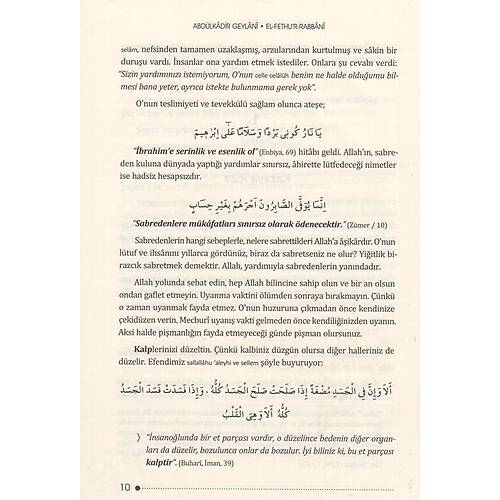 ABDÜLKÂDİR GEYLÂNÎ • EL-FETHU'R-RABBÂNÎ
selâm, nefsinden tamamen uzaklaşmış, arzularından kurtulmuş ve sâkin bir
duruşu vardı. İnsanlar ona yardım etmek istediler. Onlara şu cevabı verdi:
"Sizin yardımınızı istemiyorum, O'nun celle celâlüh benim ne halde olduğumu bil-
mesi bana yeter, ayrıca istekte bulunmama gerek yok".
O'nun teslimiyeti ve tevekkülü sağlam olunca ateşe;
يَا نَارُ كُونِي بَرْدًا وَسَلَامًا عَلَى إِبْرَهِيمَ
"İbrahim'e serinlik ve esenlik ol" (Enbiya, 69) hitâbı geldi. Allah'ın, sabre-
den kuluna dünyada yaptığı yardımlar sınırsız, âhirette lütfedeceği nimetler
ise hadsiz hesapsızdır.
إِنَّمَا يُوَفَّى الصَّابِرُونَ أَجْرَهُمْ بِغَيْرِ حِسَابٍ
"Sabredenlere mükâfatları sınırsız olarak ödenecektir." (Zümer / 10)
Sabredenlerin hangi sebeplerle, nelere sabrettikleri Allah'a âşikârdır. O'nun
lütuf ve ihsânını yıllarca gördünüz, biraz da sabretseniz ne olur? Yiğitlik bi-
razcık sabretmek demektir. Allah, yardımıyla sabredenlerin yanındadır.
Allah yolunda sebat edin, hep Allah bilincine sahip olun ve bir an olsun
ondan gaflet etmeyin. Uyanma vaktini ölümden sonraya bırakmayın. Çünkü
o zaman uyanmak fayda etmez. O'nun huzuruna çıkmadan önce kendinize
çekidüzen verin. Mecburî uyanış vakti gelmeden önce kendiliğinizden uyanın.
Aksi halde pişmanlığın fayda etmeyeceği günde pişman olursunuz.
Kalplerinizi düzeltin. Çünkü kalbiniz düzgün olursa diğer halleriniz de
düzelir. Efendimiz sallallâhu 'aleyhi ve sellem şöyle buyuruyor:
أَلَا وَإِنَّ فِي الْجَسَدِ مُضْغَةً إِذَا صَلَحَتْ صَلَحَ الْجَسَدُ كُلُّهُ ، وَإِذَا فَسَدَتْ فَسَدَ الْجَسَدُ
كُلُّهُ أَلَا وَهِيَ الْقَلْبُ
) "İnsanoğlunda bir et parçası vardır, o düzelince bedenin diğer organ-
ları da düzelir, bozulunca onlar da bozulur. İyi biliniz ki, bu et parçası
kalptir". (Buharî, İman, 39)
10